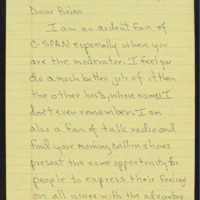 Dear Brian
I am an ardent fan of
C-SPAN especially when you
are the moderator. I feel you
do a much better job of it than
the other hosts, whose names I
don't even remember. I am
also a fan of talk radio and
find your morning call in shows
present the same opportunity for
people to express their feelings
on all issues with the advantage